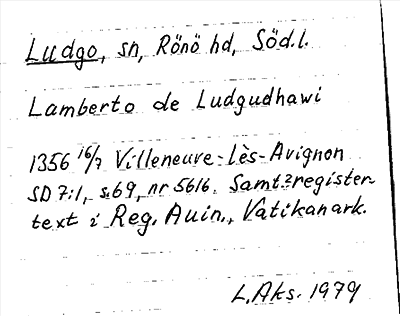 Ludgo, sn, Rönö hd, Söd.l.
Lamberto de Ludgudhawi
1356 16/7 Villeneuve-lès-Avignon
SD 7:1, s.69, nr 5616. Samt. register-
text i Reg. Auin., Vatikanark.
L.Aks. 1979